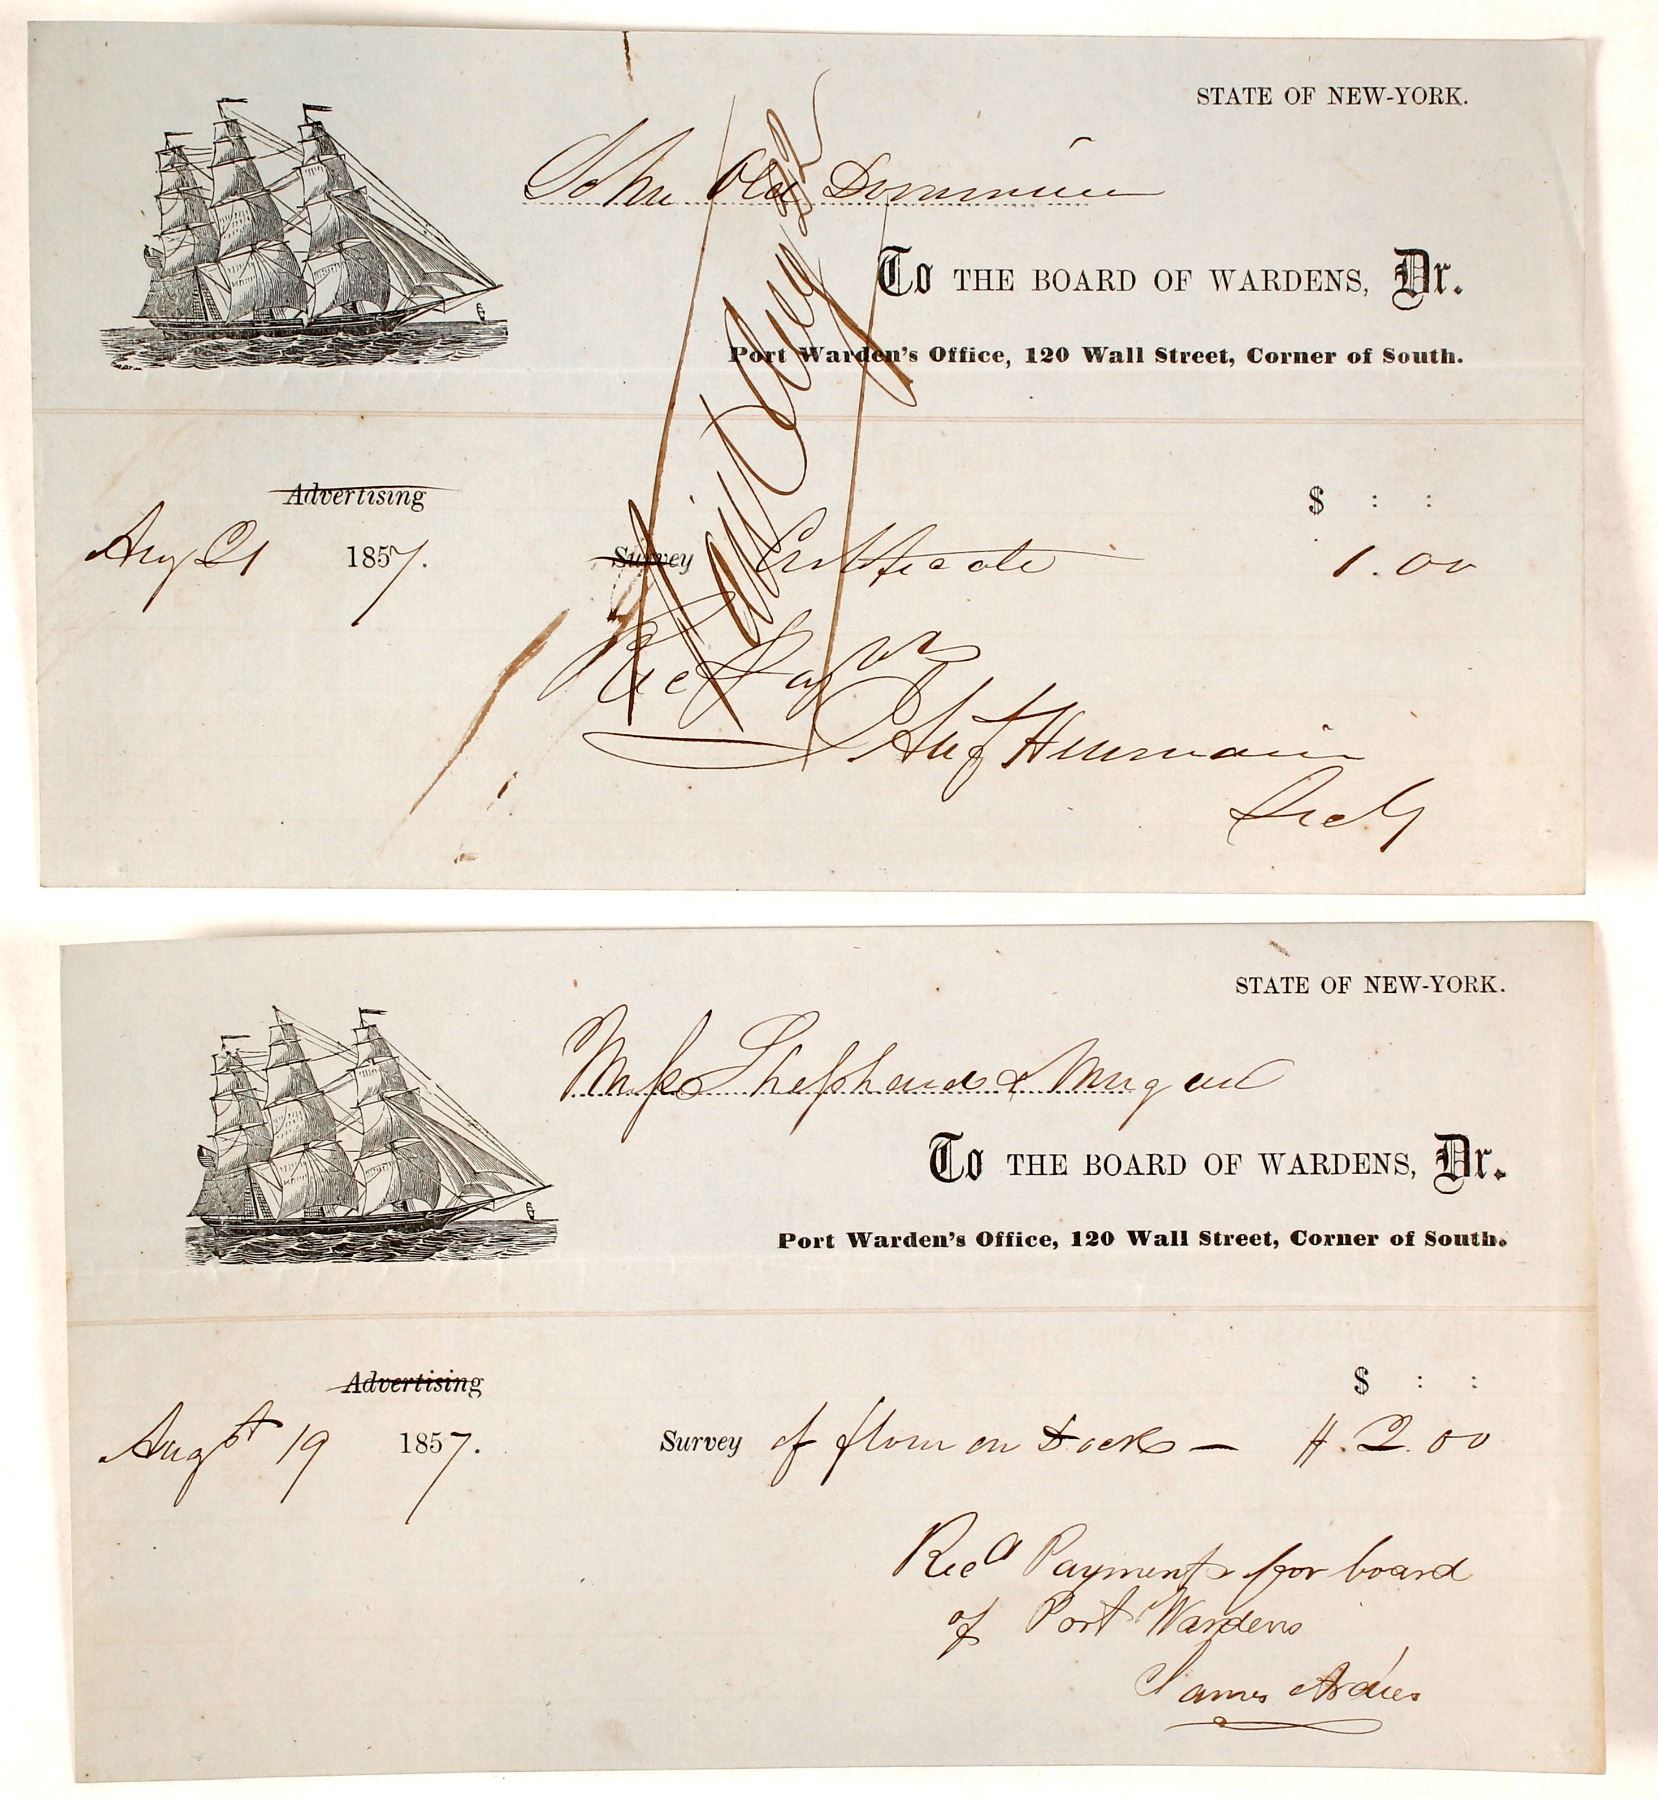 STATE OF NEW-YORK.
John
To THE BOARD OF WARDENS, Dr.
Port Warden's Office, 120 Wall Street, Corner of South.
Advertising $ : :
Aug 21 1857. Survey Certificate 1.00
Rec Pay
Secty
STATE OF NEW-YORK.
Mess Shephards &
To THE BOARD OF WARDENS, Dr.
Port Warden's Office, 120 Wall Street, Corner of South.
Advertising $ : :
Augst 19 1857. Survey of flour on Dock — $.2.00
Recd Payment for board
of Port Wardens
James